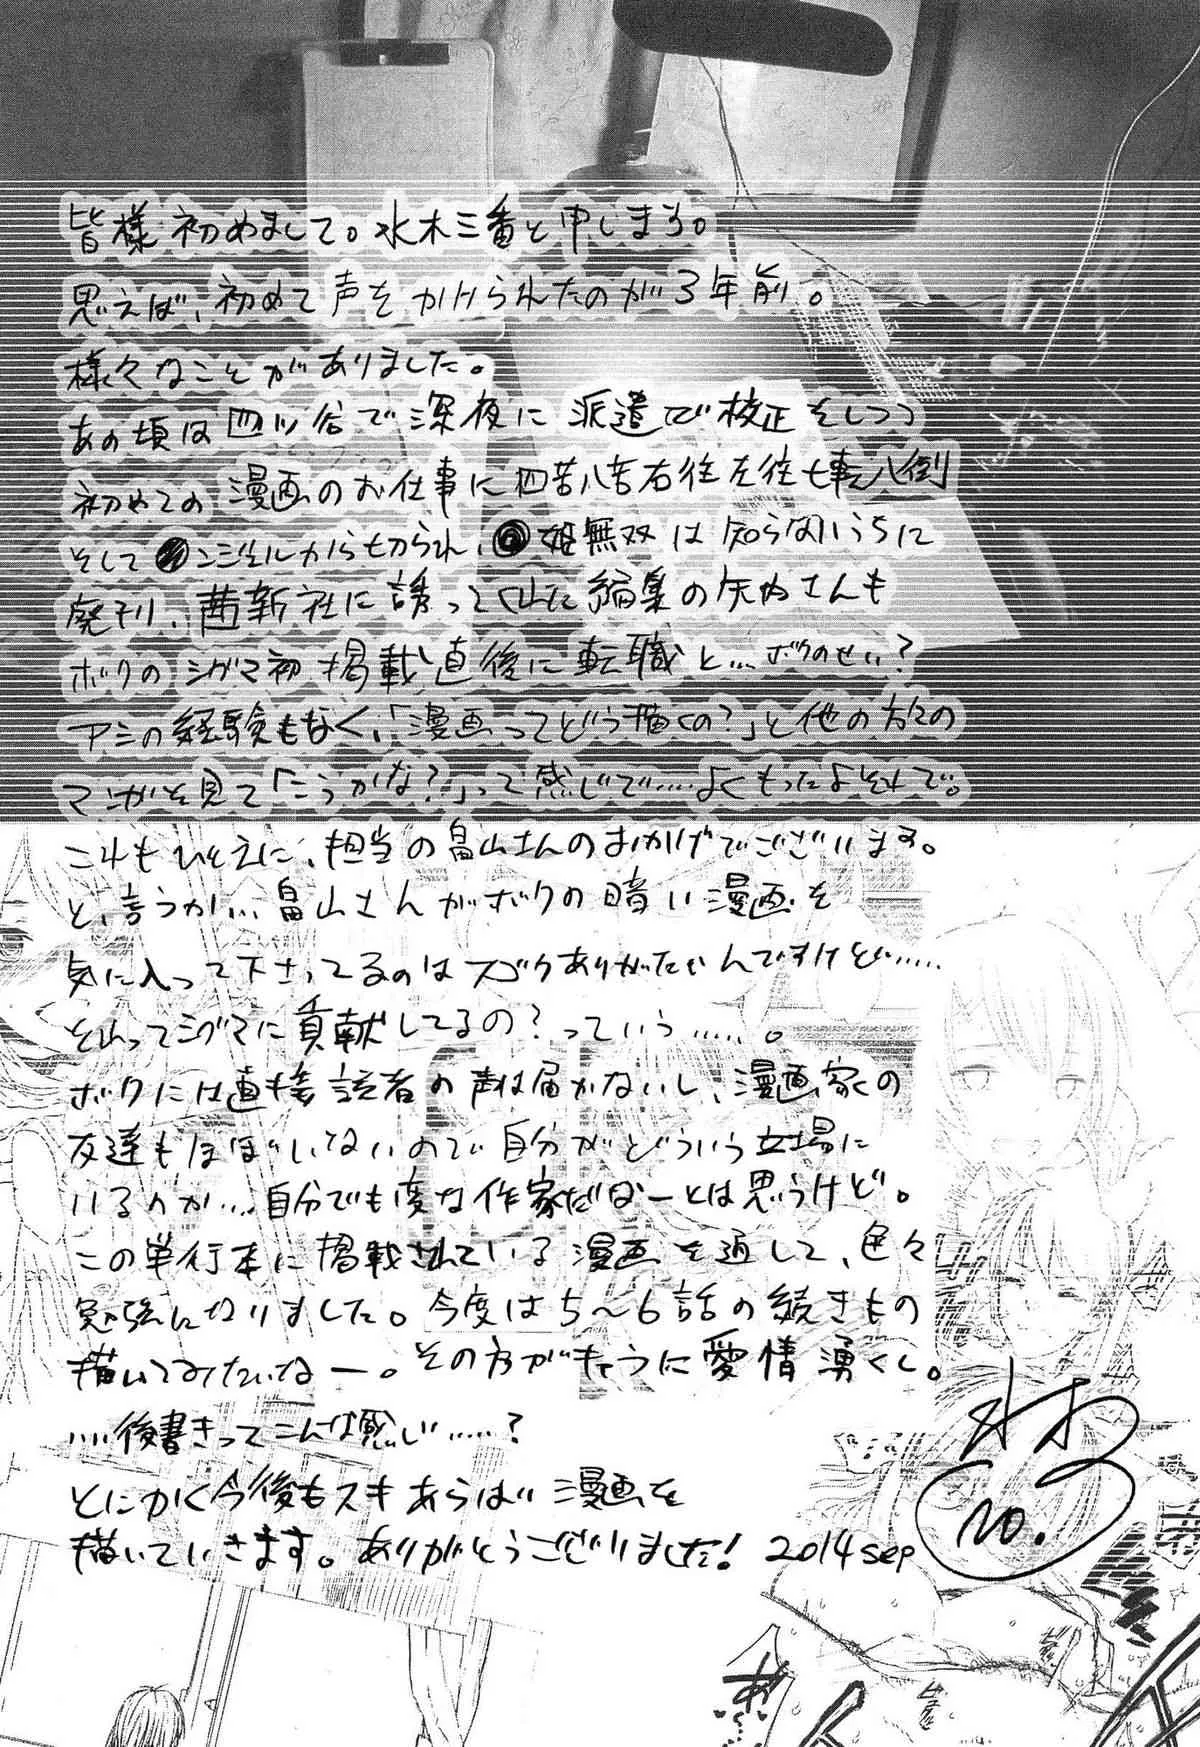 皆様初めまして。水木三番と申しまする。
思えば、初めて声をかけられたのが3年前。
様々なことがありました。
あの頃は四ツ谷で深夜に派遣で校正をしつつ
初めての漫画のお仕事に四苦八苦右往左往七転八倒
そして ンジェルから切られ、 姫無双は知らないうちに
廃刊、茜新社に誘ってくれた編集の さんも
ボクのシグマ初掲載直後に転職と…ボクのせい?
アシの経験もなく、「漫画ってどう描くの?」と他の方々の
マンガを見て「こうかな?」って感じで……よくもったよそれで。
これもひとえに、担当の畠山さんのおかげでございます。
と、言うか…畠山さんがボクの暗い漫画を
気に入って下さってるのはスゴクありがたいんですけど……
それってシグマに貢献してるの?っていう……。
ボクには直接読者の声は届かないし、漫画家の
友達もほぼいないので自分がどういう立場に
いるのか…自分でも変な作家だなーとは思うけど。
この単行本に掲載されている漫画を通して、色々
勉強になりました。今度は5～6話の続きもの
描いてみたいなー。その方がキャラに愛情湧くし。
……後書きってこんな感じ……?
とにかく今後もスキあらば漫画を
描いていきます。ありがとうございました! 2014sep
no.